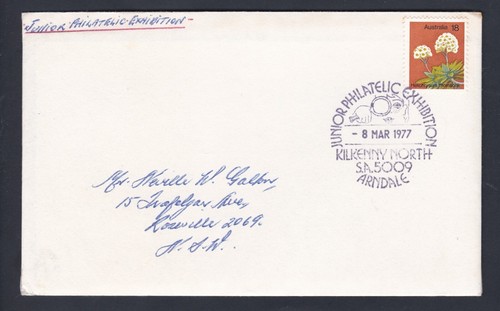 JUNIOR PHILATELIC EXHIBITION
Australia 18
JUNIOR PHILATELIC EXHIBITION
- 8 MAR 1977
KILKENNY NORTH
S.A. 5009
ARNDALE
Mr. Neville W.
15 Trafalgar Ave,
Roseville 2069.
N.S.W.